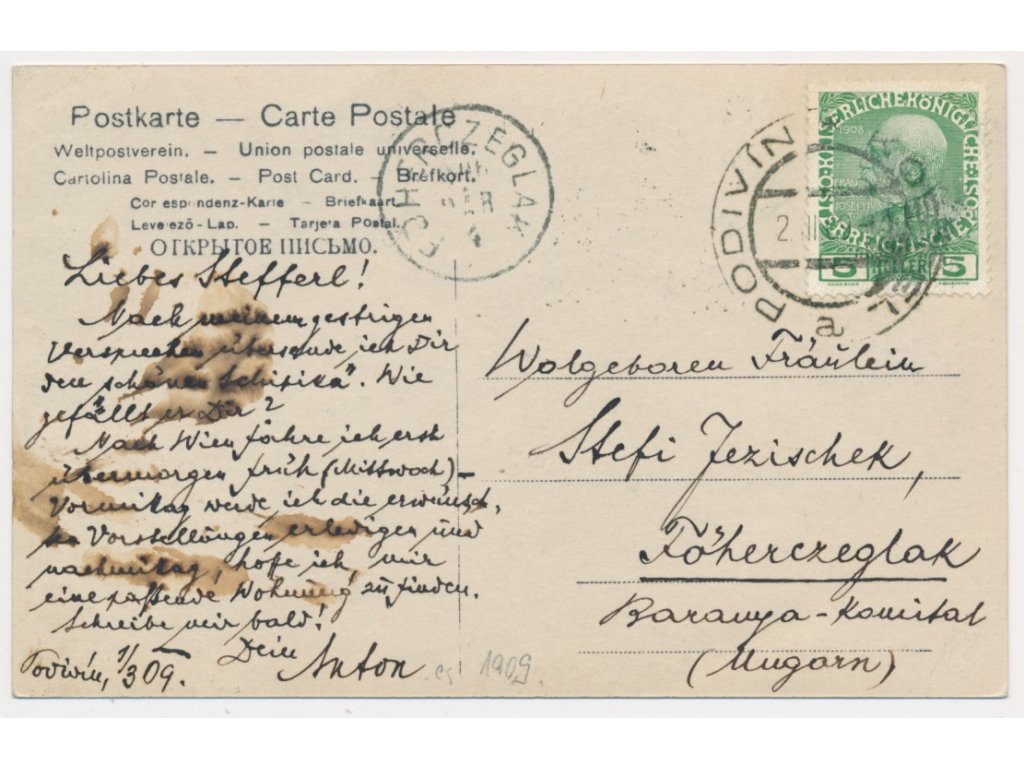 Postkarte — Carte Postale
Weltpostverein. — Union postale universelle.
Cartolina Postale. — Post Card. — Brefkort.
Correspondenz-Karte — Briefkaart
Levelező-Lap. — Tarjeta Postal.
ОТКРЫТОЕ ПИСЬМО.
FŐHERCZEGLAK
PODIVÍN
a
KAISERLICHE KÖNIGLICHE
ÖSTERREICHISCHE
1908
5 HELLER 5
Liebes Stefferl!
Nach meinem gestrigen
Versprechen übersende ich Dir
den schönen "Schipika". Wie
gefällt er Dir?
Nach Wien fahre ich erst
übermorgen früh (Mittwoch) –
Vormittag werde ich die erwünsch-
ten Vorstellungen erledigen und
nachmittag, hoffe ich, mir
eine passende Wohnung zu finden.
Schreibe mir bald!
Dein Anton
Podivín, 1/3 09.
1909
Wolgeboren Fräulein
Stefi Jezischek,
Főherczeglak
Baranya-Komitat
(Ungarn)